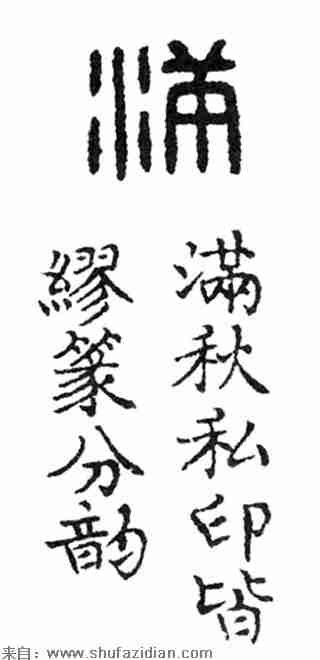 滿
滿秋私印皆
繆篆分韵
来自：www.shufazidian.com